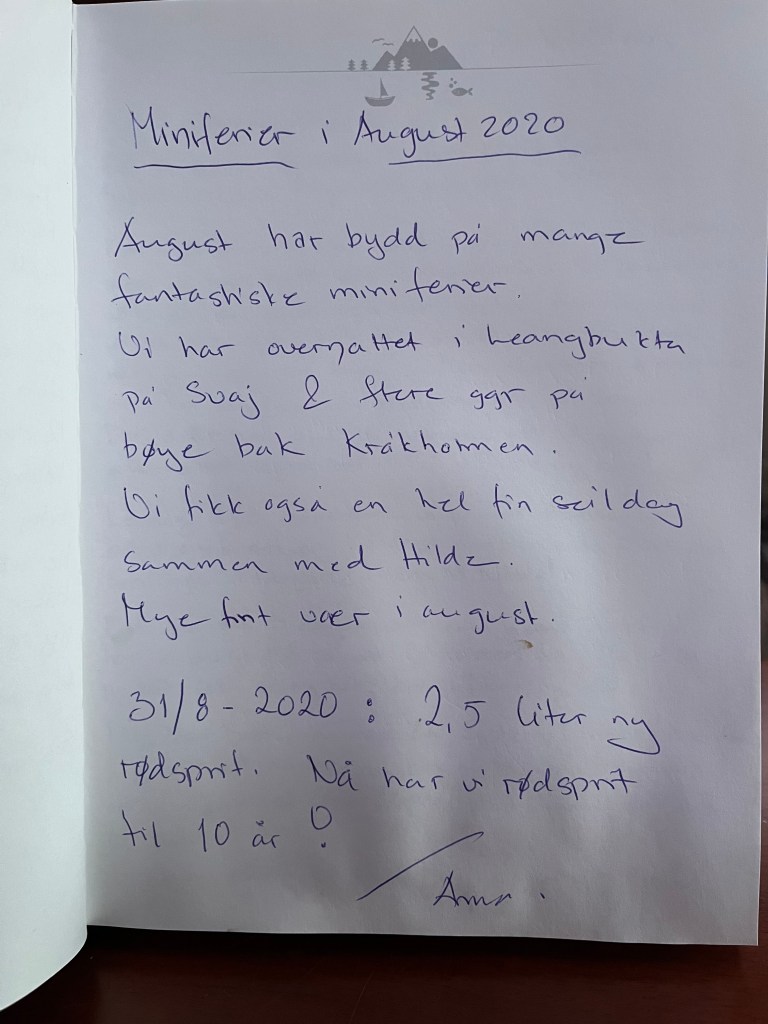 Miniferier i August 2020
August har bydd på mange
fantastiske miniferier.
Vi har overnattet i Leangbukta
på Svaj & flere ggr på
bøye bak Kråkholmen.
Vi fikk også en hel fin seildag
sammen med Hilde.
Mye fint vær i august.
31/8-2020: 2,5 liter ny
rødsprit. Nå har vi rødsprit
til 10 år!